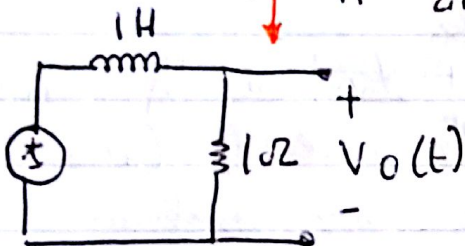 1H
+
1Ω V0(t)
-